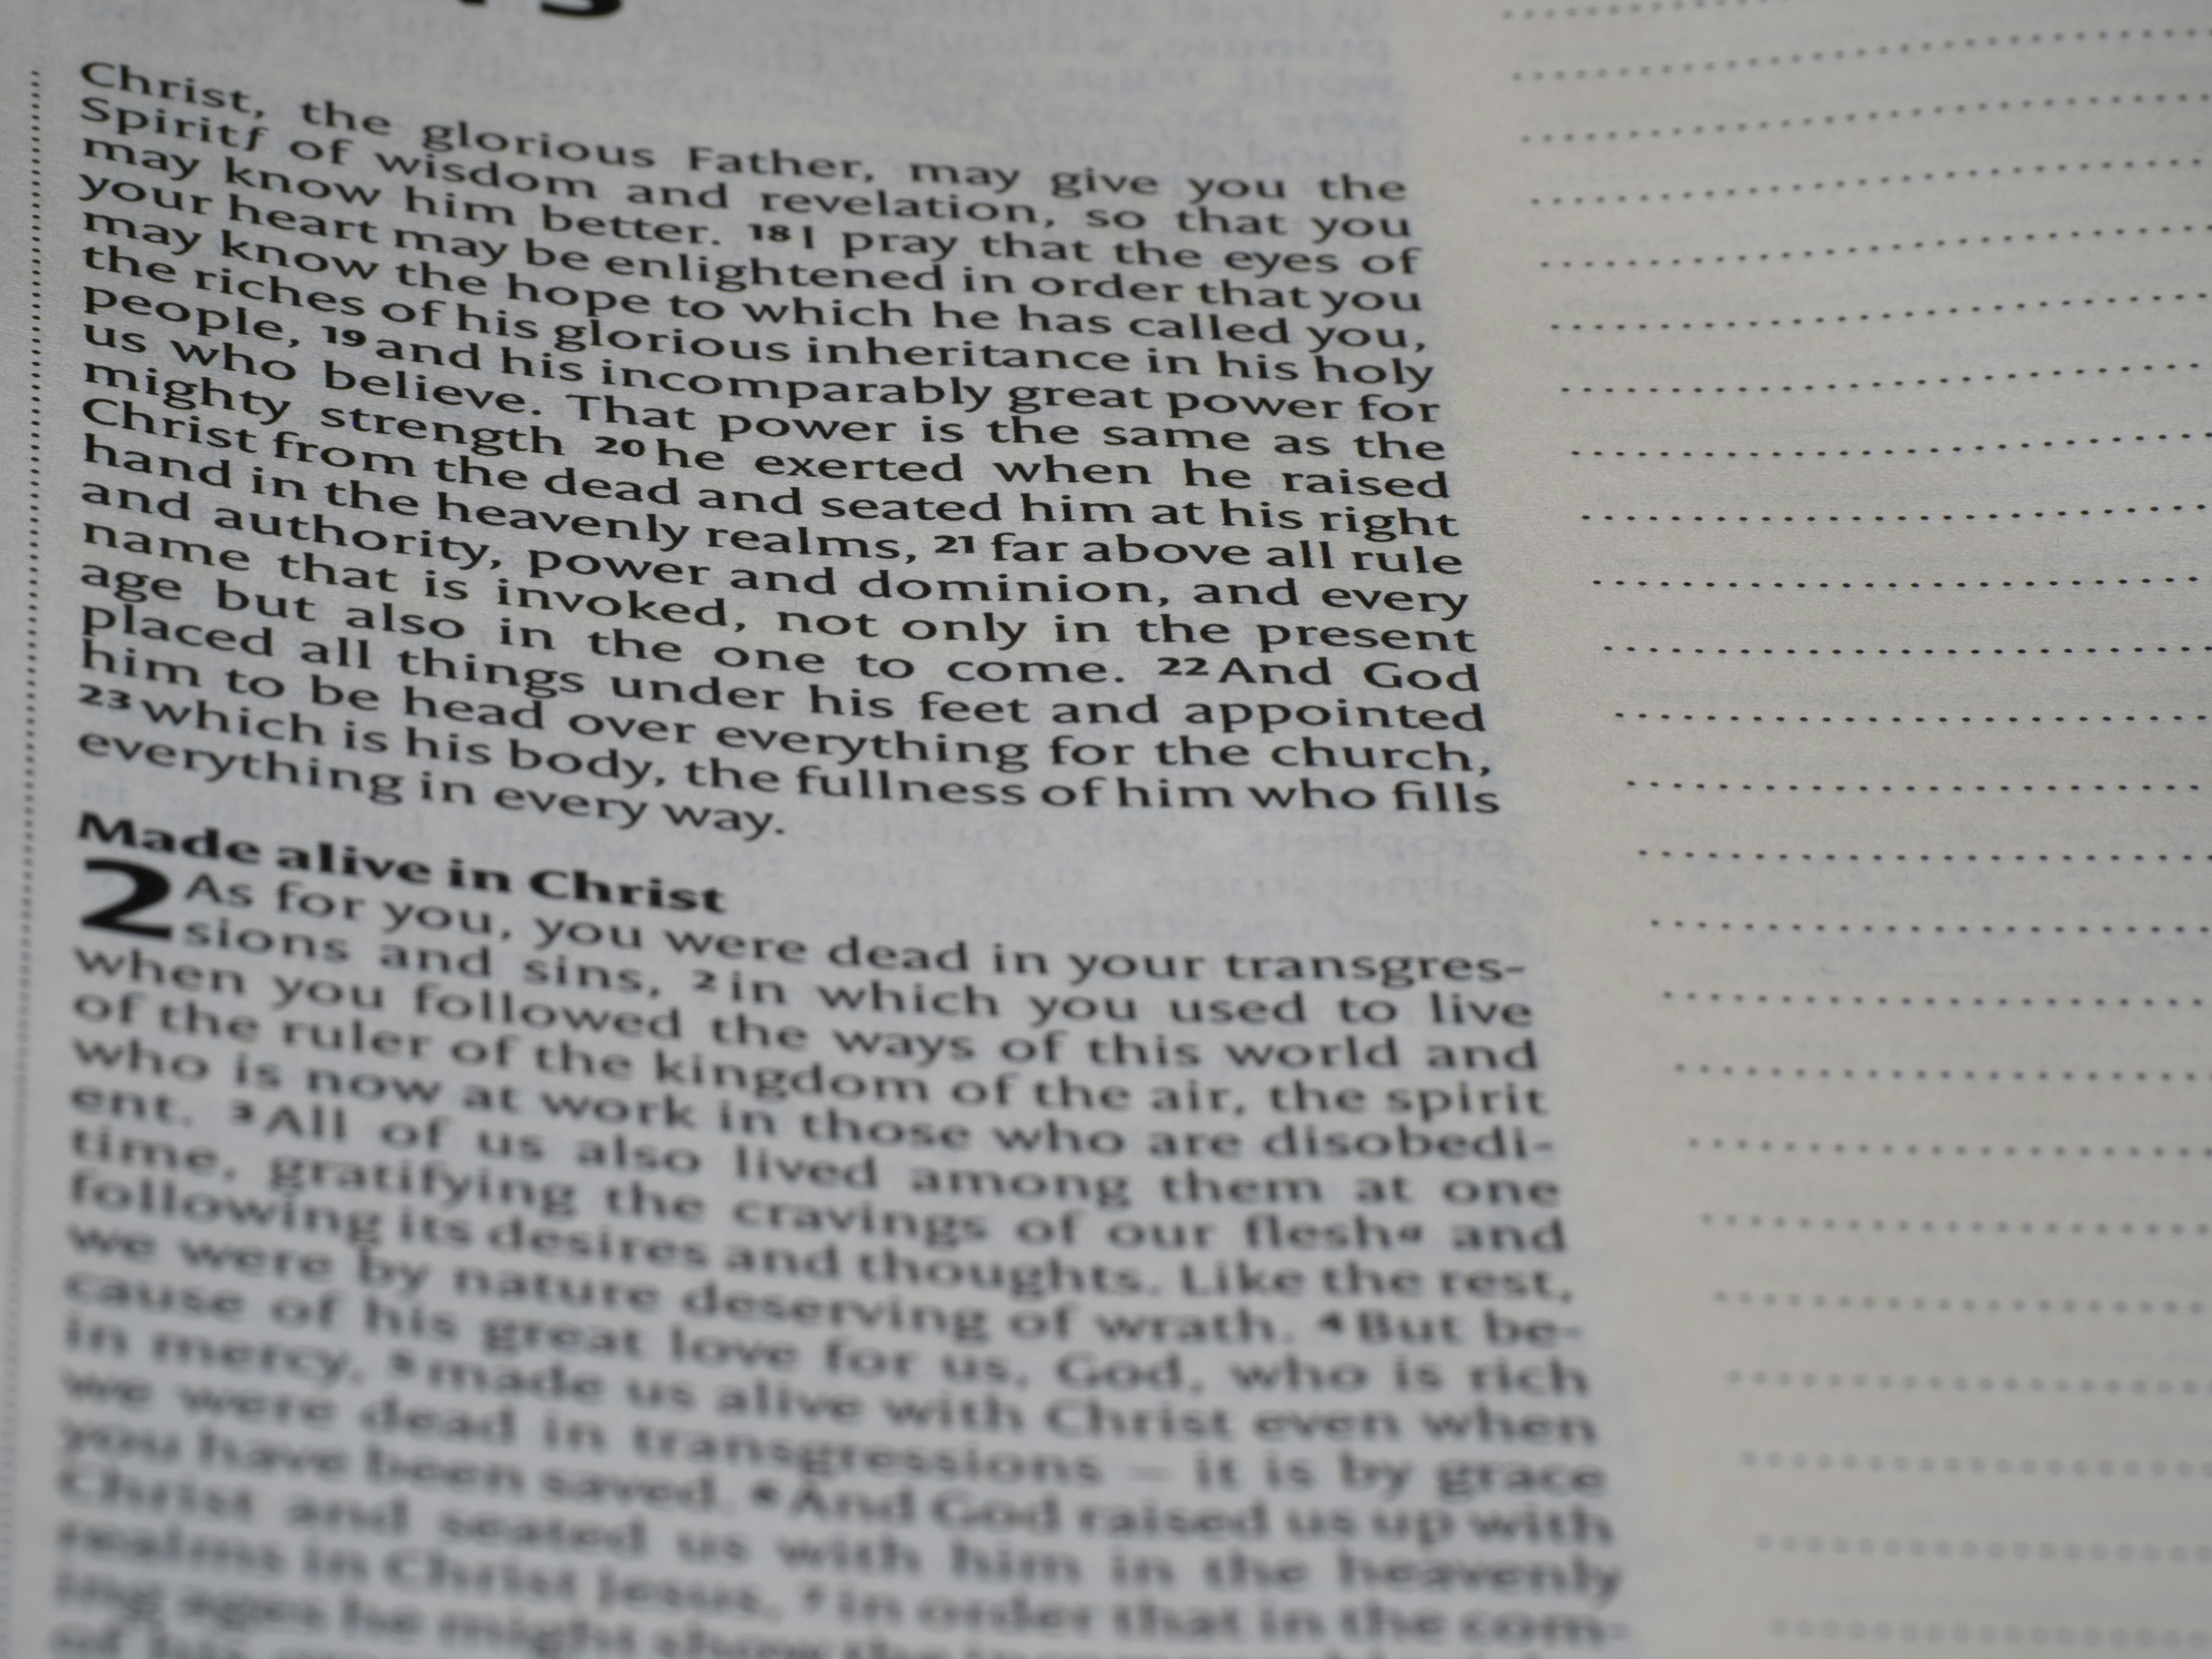 Christ, the glorious Father, may give you the
Spiritf of wisdom and revelation, so that you
may know him better. 18 I pray that the eyes of
your heart may be enlightened in order that you
may know the hope to which he has called you,
the riches of his glorious inheritance in his holy
people, 19 and his incomparably great power for
us who believe. That power is the same as the
mighty strength 20 he exerted when he raised
Christ from the dead and seated him at his right
hand in the heavenly realms, 21 far above all rule
and authority, power and dominion, and every
name that is invoked, not only in the present
age but also in the one to come. 22 And God
placed all things under his feet and appointed
him to be head over everything for the church,
23 which is his body, the fullness of him who fills
everything in every way.
Made alive in Christ
2 As for you, you were dead in your transgres-
sions and sins, 2 in which you used to live
when you followed the ways of this world and
of the ruler of the kingdom of the air, the spirit
who is now at work in those who are disobedi-
ent. 3 All of us also lived among them at one
time, gratifying the cravings of our flesha and
following its desires and thoughts. Like the rest,
we were by nature deserving of wrath. 4 But be-
cause of his great love for us, God, who is rich
in mercy, 5 made us alive with Christ even when
we were dead in transgressions – it is by grace
you have been saved. 6 And God raised us up with
Christ and seated us with him in the heavenly
realms in Christ Jesus, 7 in order that in the com-
ing ages he might show the
of his